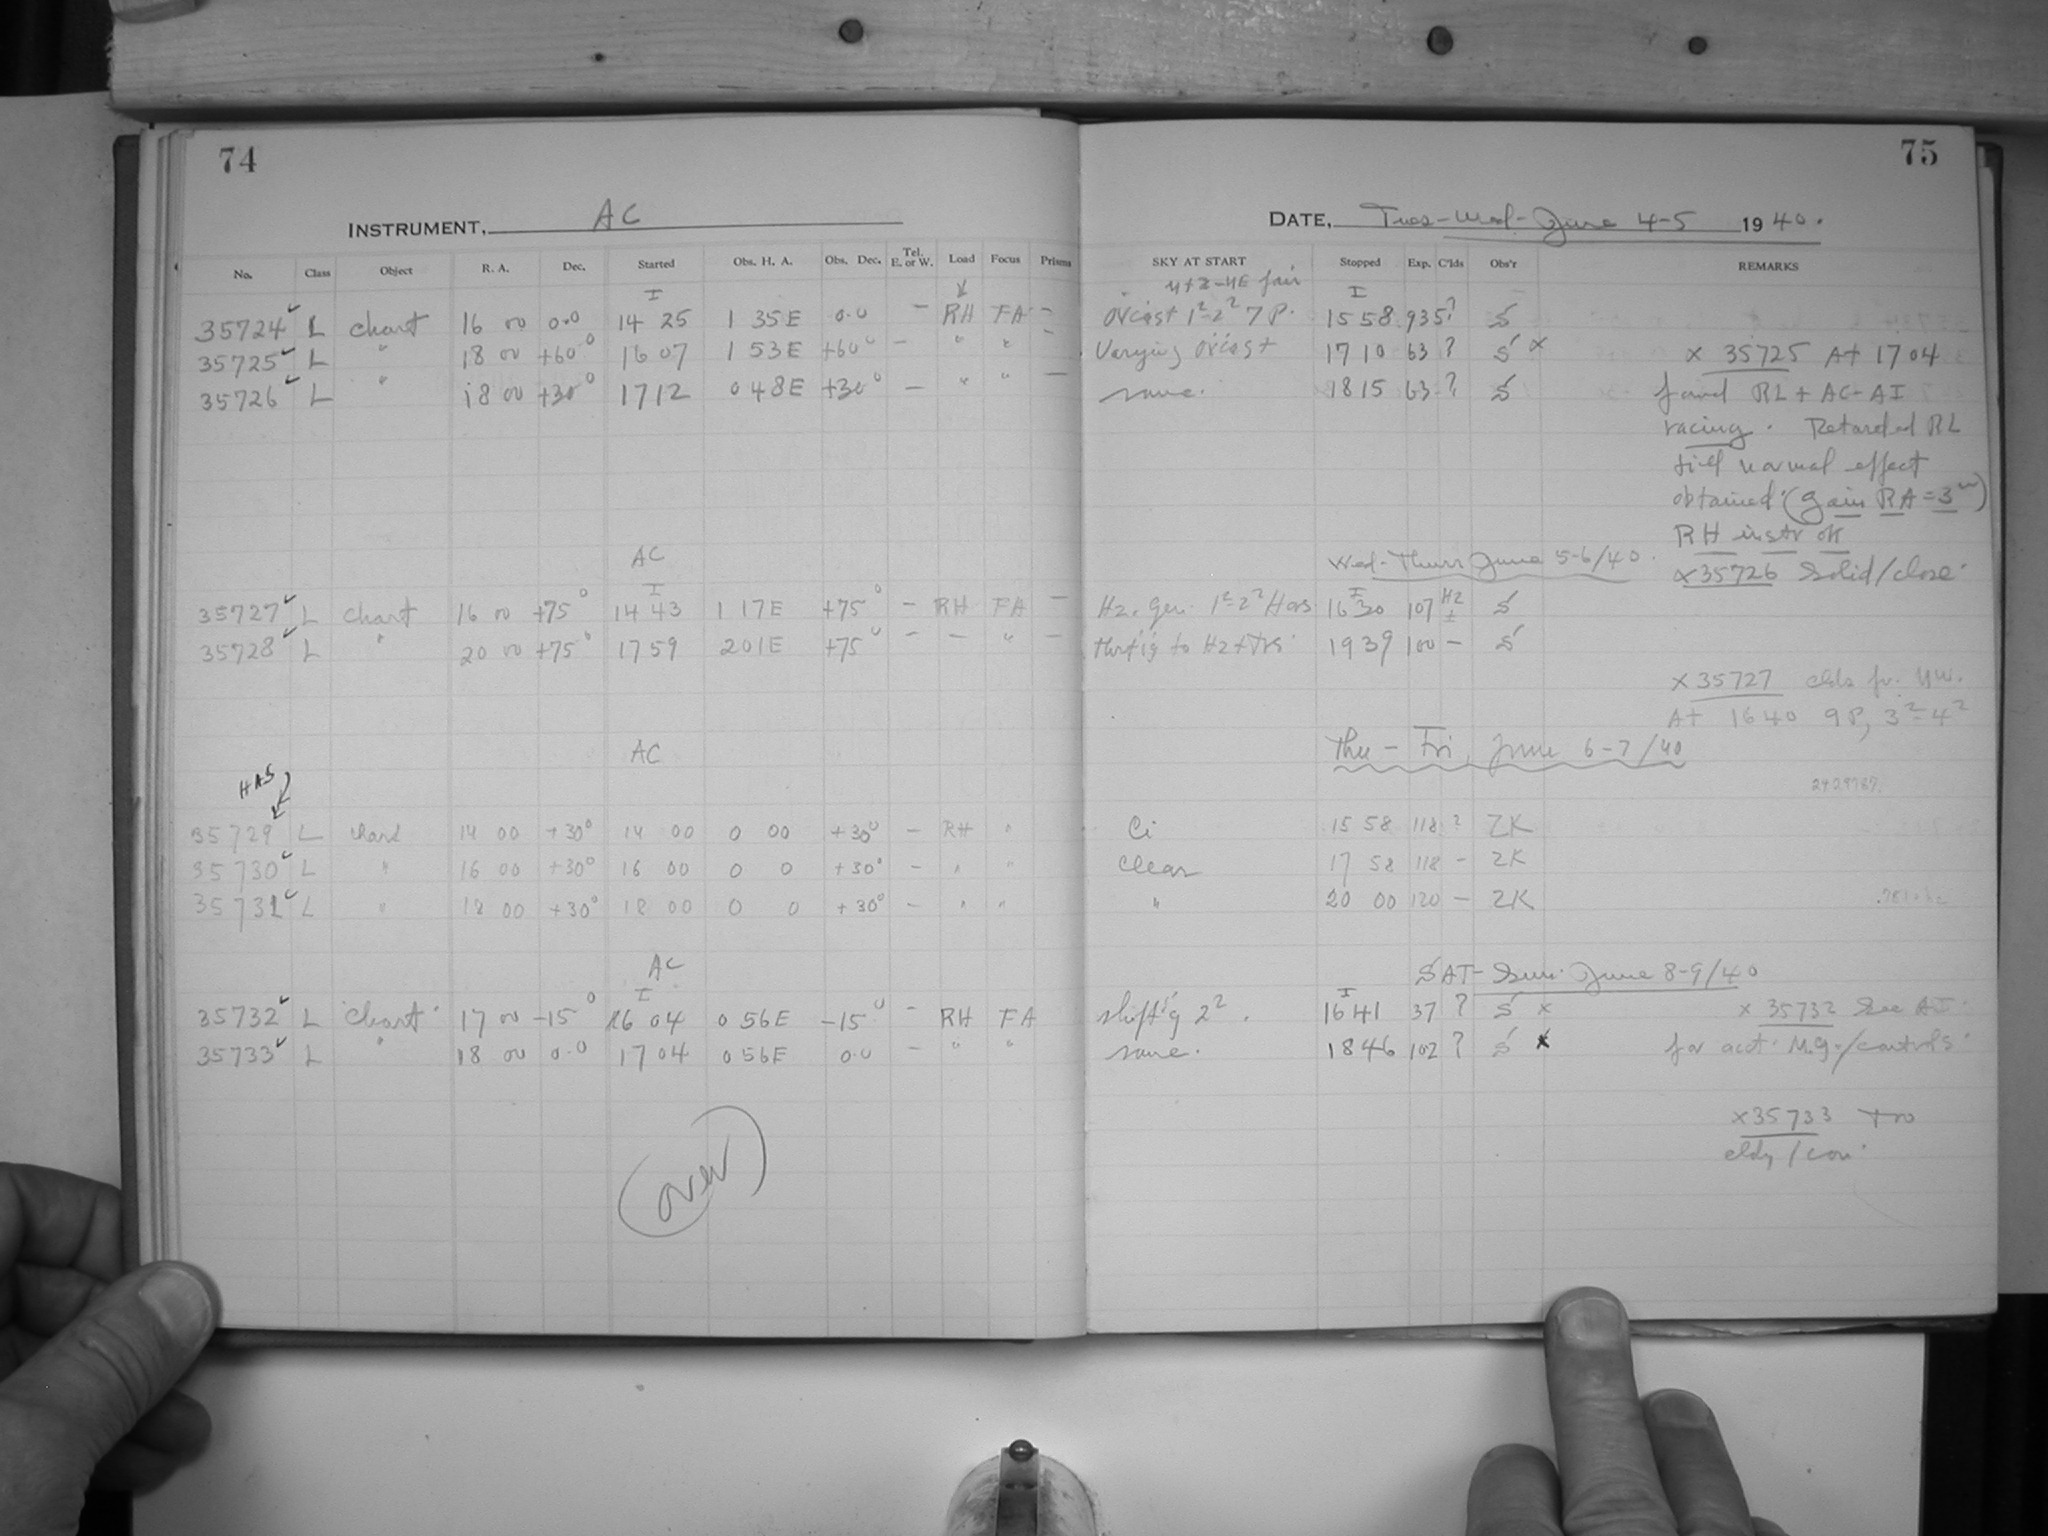 74
INSTRUMENT, AC
No. Class Object R. A. Dec. Started Obs. H. A. Obs. Dec. Tel. E. or W. Load Focus Prisms
I
35724 L chart 16 00 0.0 14 25 1 35E 0.0 — RH FA —
35725 L " 18 00 +60° 16 07 1 53E +60° — " " —
35726 L " 18 00 +30° 17 12 0 48E +30° — " " —
AC
I
35727 L chart 16 00 +75° 14 43 1 17E +75° — RH FA —
35728 L " 20 00 +75° 17 59 2 01E +75° — — " —
AC
HAS
35729 L chart 14 00 +30° 14 00 0 00 +30° — RH "
35730 L " 16 00 +30° 16 00 0 0 +30° — " "
35731 L " 18 00 +30° 18 00 0 0 +30° — " "
AC
I
35732 L chart 17 00 -15° 16 04 0 56E -15° — RH FA
35733 L " 18 00 0.0 17 04 0 56E 0.0 — " "
(over)
75
DATE, Tues-Wed- June 4-5 1940.
SKY AT START Stopped Exp. C'lds Obs'r REMARKS
fair
I
ovcast 1²-2² 7P. 15 58 93 ? S
Varying ovcast 17 10 63 ? S x
same. 18 15 63 ? S
x 35725 At 1704
found RL + AC-AI
racing. Retarded RL
till normal effect
obtained. (gain RA = 3m)
RH instr ok
x35726 Solid/close.
Wed-Thurs June 5-6/40.
I
Hz. gen. 1²-2² 16 30 107 Hz S
to Hz + 19 39 100 — S
x 35727 clds fr. NW.
At 1640 9P, 3²-4²
Thu - Fri, June 6-7/40
2429787.
Ci 15 58 118 ? ZK
clear 17 58 118 — ZK
" 20 00 120 — ZK
SAT- Sun. June 8-9/40
I
shift'g 2². 16 41 37 ? S x
same. 18 46 102 ? S x
x 35732 See AI
for acct. M.g./controls.
x35733
cldy/con.